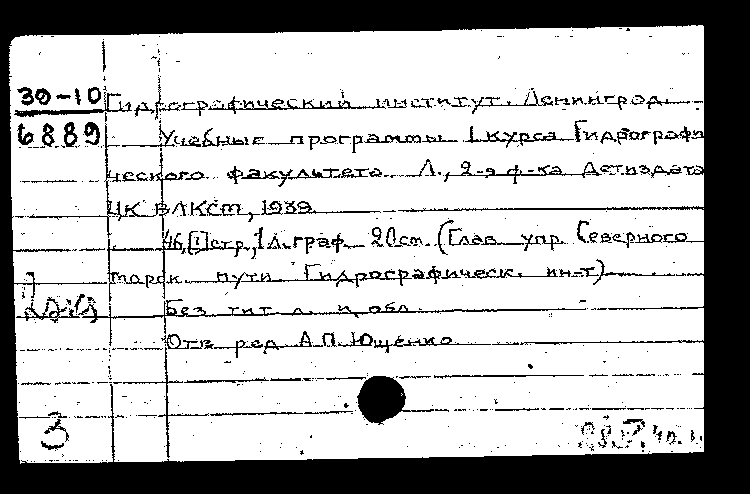 39-10
6889
Гидрографический институт. Ленинград.
Учебные программы I курса Гидрографи
ческого факультета. Л., 2-я ф-ка Детиздата
ЦК ВЛКСМ, 1939.
46,[1]стр.,1 л.граф. 20см. (Глав. упр. Северного
морск. пути. Гидрографическ. ин-т)
Без тит. л. и обл.
Отв. ред. А.П. Ющенко
3